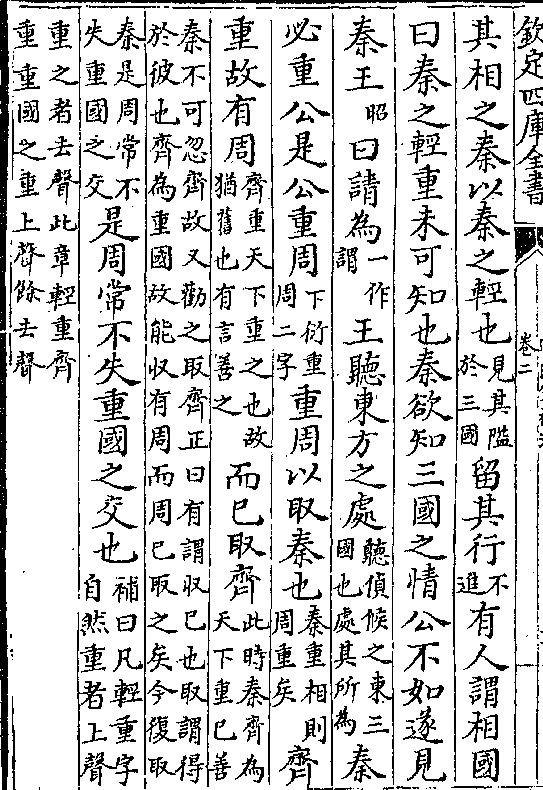 欽定四庫全書
卷二
其相之秦以秦之輕也見其隘於三國留其行不進有人謂相國
曰秦之輕重未可知也秦欲知三國之情公不如遂見
秦王昭曰請為一作謂王聽東方之處聽偵候之東三國也處其所為秦
必重公是公重周下衍重周二字重周以取秦也秦重相則周重矣齊
重故有周齊重天下重之也故猶舊也有言善之而已取齊此時秦齊為天下重已善
秦不可忽齊故又勸之取齊正曰有謂収已也取謂得
於彼也齊為重國故能収有周而周已取之矣今復取
秦是周常不失重國之交是周常不失重國之交也補曰凡輕重字自然重者上聲
重之者去聲此章輕重齊
重重國之重上聲餘去聲